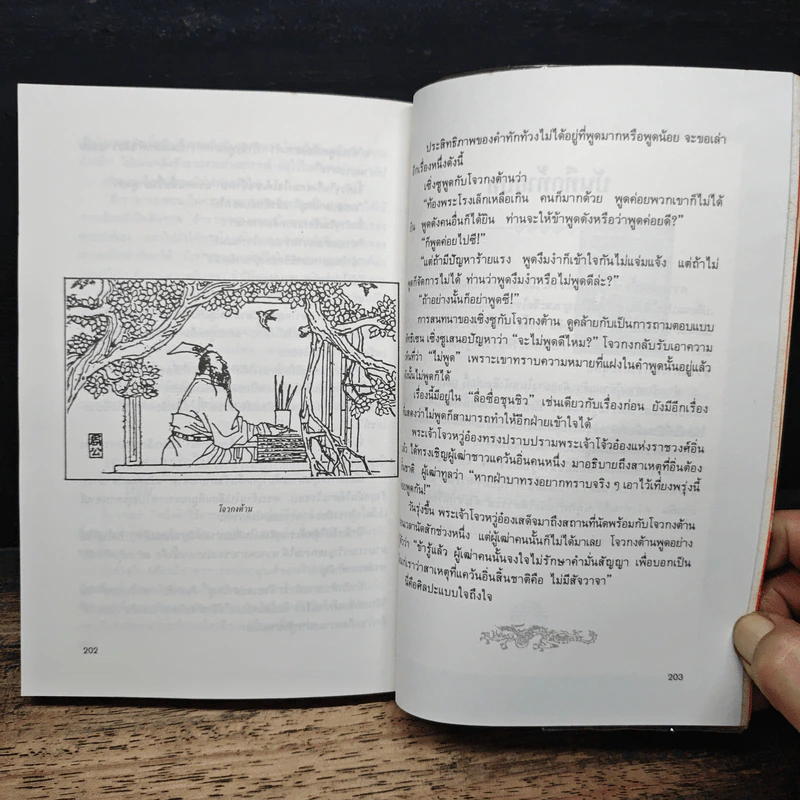 周公
โจวกงต้าน
202
ประสิทธิภาพของคำทักท้วงไม่ได้อยู่ที่พูดมากหรือพูดน้อย จะขอเล่า
อีกเรื่องหนึ่งดังนี้
เซิ่งซูพูดกับโจวกงต้านว่า
“ท้องพระโรงเล็กเหลือเกิน คนก็มากด้วย พูดค่อยพวกเขาก็ไม่ได้
ยิน พูดดังคนอื่นก็ได้ยิน ท่านจะให้ข้าพูดดังหรือว่าพูดค่อยดี?”
“ก็พูดค่อยไปซี!”
“แต่ถ้ามีปัญหาร้ายแรง พูดงึมงำก็เข้าใจกันไม่แจ่มแจ้ง แต่ถ้าไม่
พูดก็จัดการไม่ได้ ท่านว่าพูดงึมงำหรือไม่พูดดีล่ะ?”
“ถ้าอย่างนั้นก็อย่าพูดซี!”
การสนทนาของเซิ่งซูกับโจวกงต้าน ดูคล้ายกับเป็นการถามตอบแบบ
เซิ่งซูเสนอปัญหาว่า “จะไม่พูดดีไหม?” โจวกงกลับรับเอาความ
ที่ว่า “ไม่พูด” เพราะเขาทราบความหมายที่แฝงในคำพูดนั้นอยู่แล้ว
นั้นไม่พูดก็ได้
เรื่องนี้มีอยู่ใน “ลื่อซื่อชุนชิว” เช่นเดียวกับเรื่องก่อน ยังมีอีกเรื่อง
แสดงว่าไม่พูดก็สามารถทำให้อีกฝ่ายเข้าใจได้
พระเจ้าโจวหวู่อ๋องทรงปราบปรามพระเจ้าโจ้วอ๋องแห่งราชวงศ์อิ่น
แล้ว ได้ทรงเชิญผู้เฒ่าชาวแคว้นอิ่นคนหนึ่ง มาอธิบายถึงสาเหตุที่อิ่นต้อง
สิ้นชาติ ผู้เฒ่าทูลว่า “หากฝ่าบาททรงอยากทราบจริง ๆ เอาไว้เที่ยงพรุ่งนี้
พูดกัน!”
วันรุ่งขึ้น พระเจ้าโจวหวู่อ๋องเสด็จมาถึงสถานที่นัดพร้อมกับโจวกงต้าน
เวลานัดสักช่วงหนึ่ง แต่ผู้เฒ่าคนนั้นก็ไม่ได้มาเลย โจวกงต้านพูดอย่าง
ว่า “ข้ารู้แล้ว ผู้เฒ่าคนนั้นจงใจไม่รักษาคำมั่นสัญญา เพื่อบอกเป็น
แก่เราว่าสาเหตุที่แคว้นอิ่นสิ้นชาติคือ ไม่มีสัจวาจา”
นี่คือศิลปะแบบใจถึงใจ
203